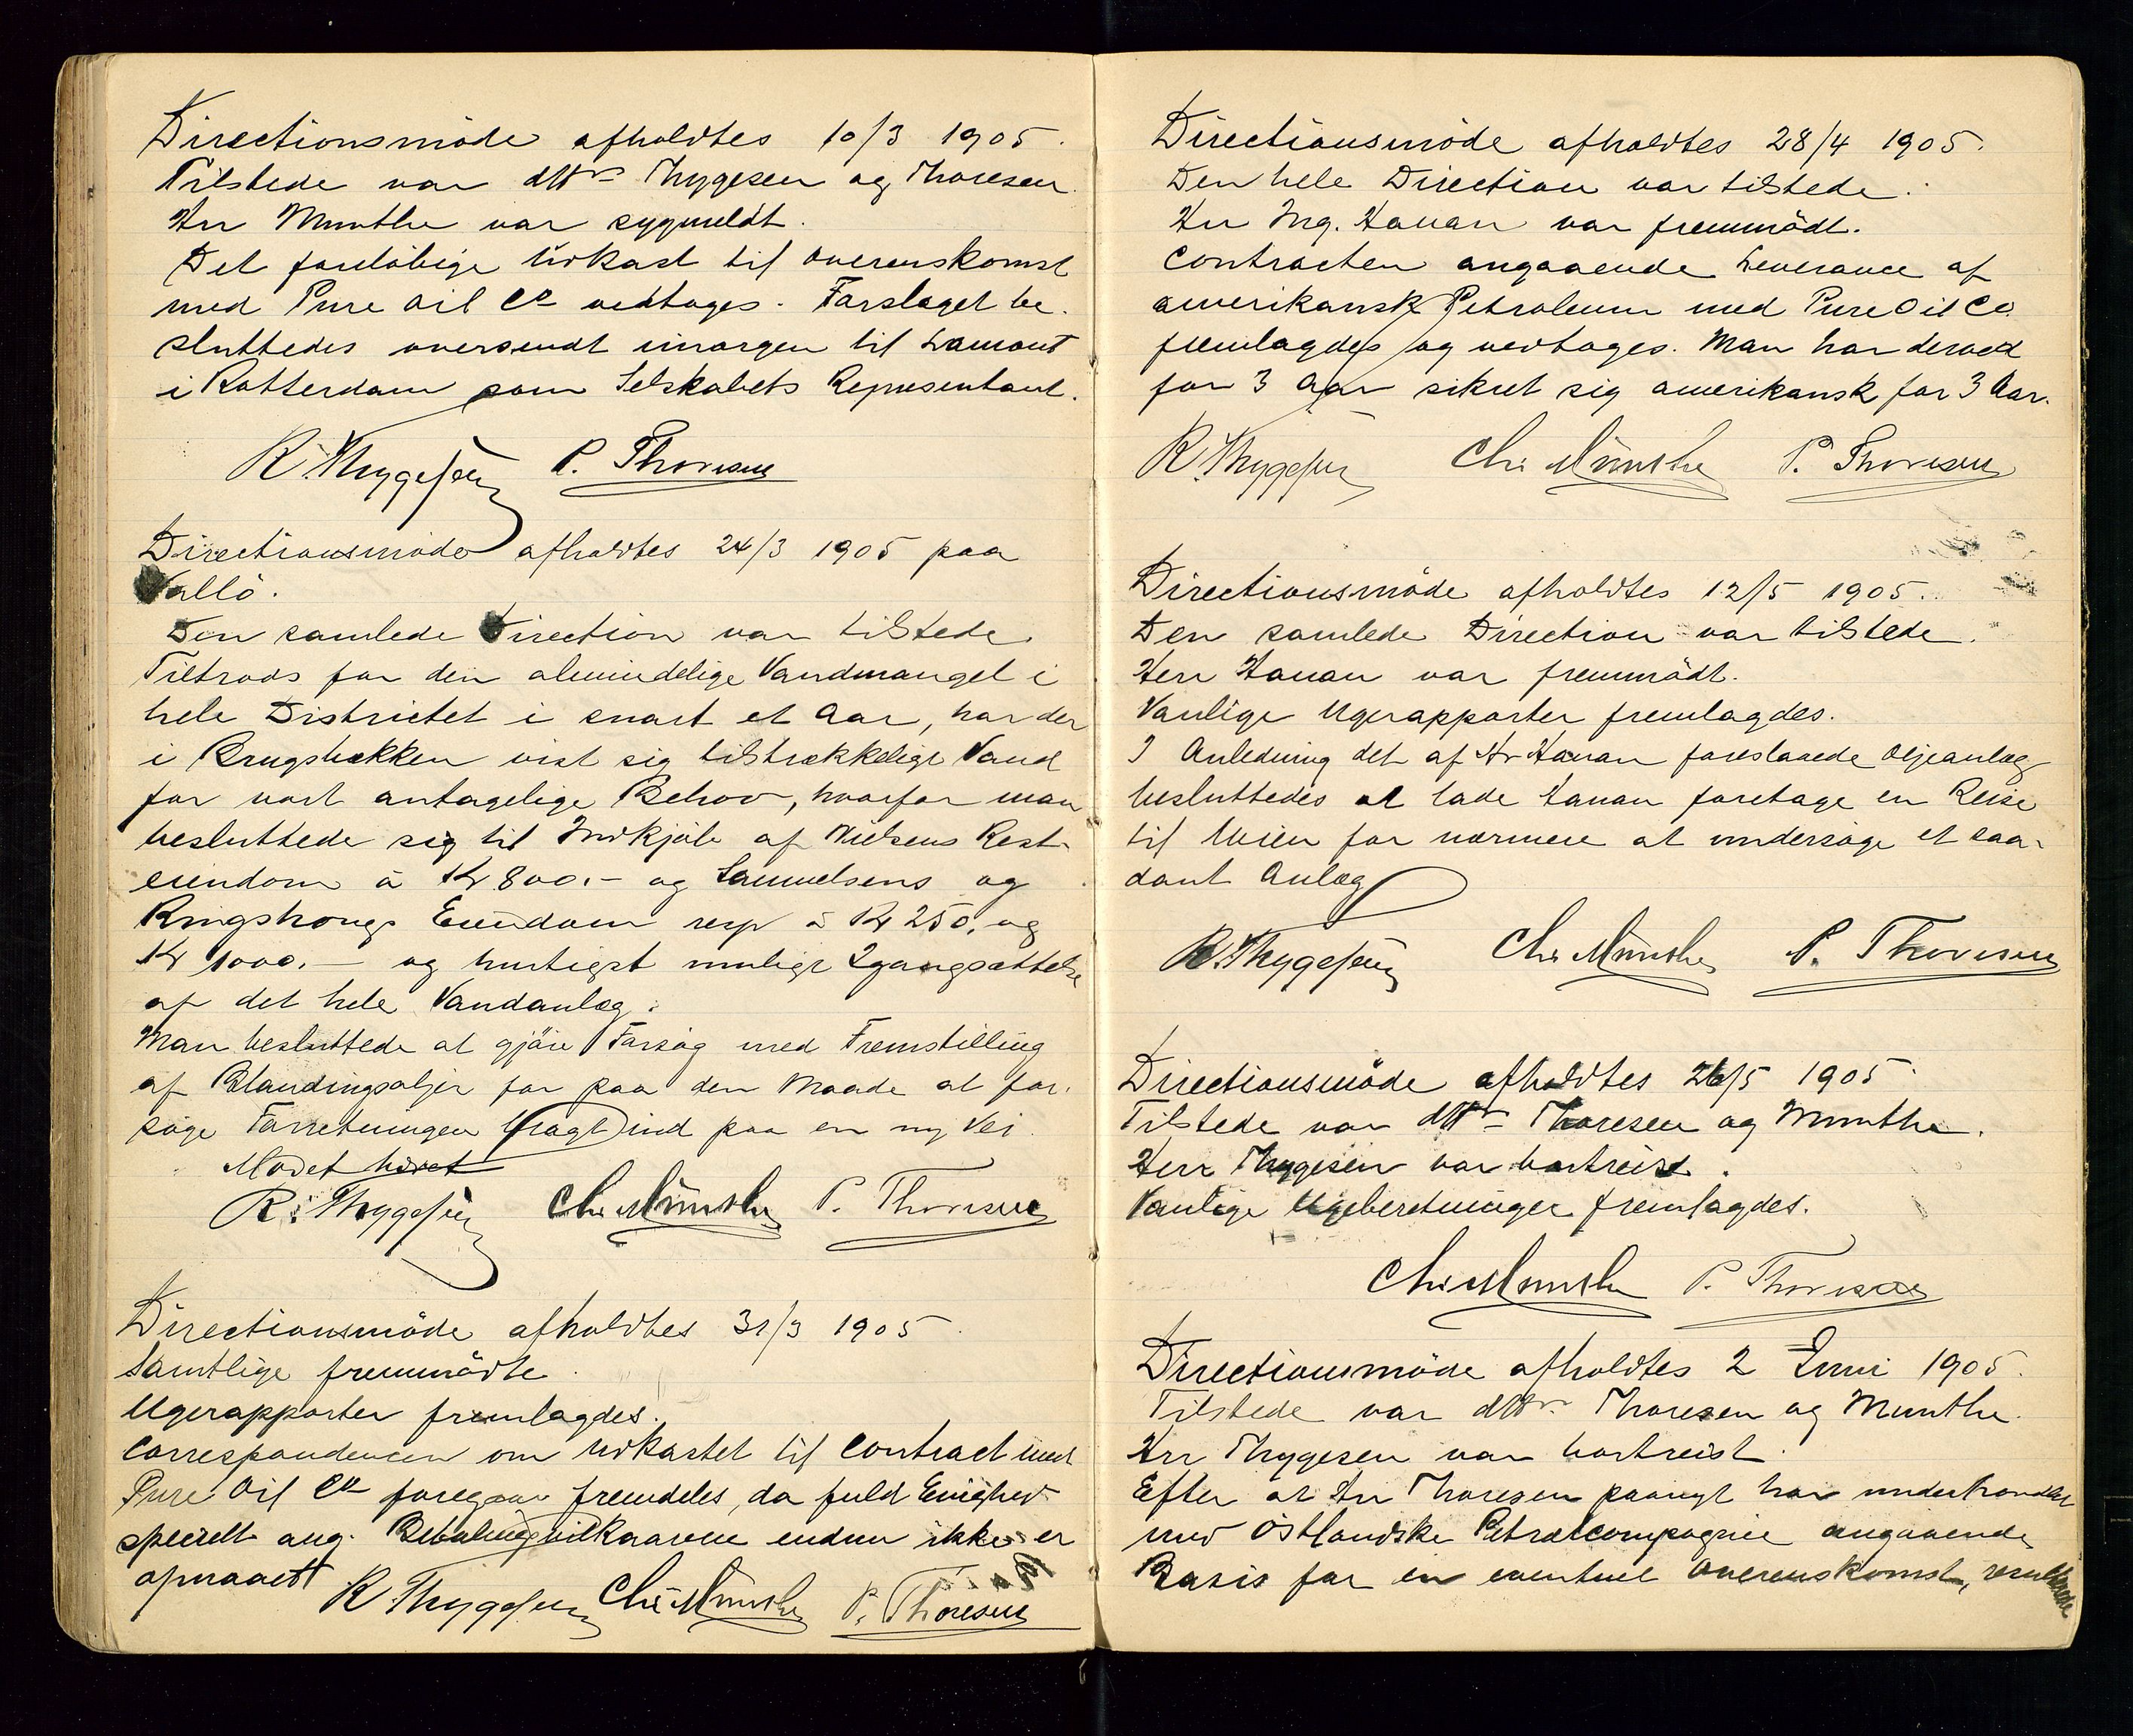 Directionsmöde afholdtes 10/3 1905.
Tilstede var dHr Thygesen og Thoresen.
Hr Munthe var sygmeldt.
Det foreløbige Udkast til Overenskomst
med Pure Oil Co vedtoges. Forslaget be-
sluttedes oversendt imorgen til Lamont
i Rotterdam som Selskabets Representant.
R. Thygesen P. Thoresen
Directionsmöde afholdtes 24/3 1905 paa
Vallö.
Den samlede Direction var tilstede.
Tiltrods for den almindelige Vandmangel i
hele Districtet i snart et Aar, har der
i Brugsbækken vist sig tilstrækkelige Vand
for vort antagelige Behov, hvorfor man
besluttede sig til Indkjöb af Nielsens Rest-
eiendom á Kr 800.- og Samuelsens og
Ringshougs Eiendom resp á Kr 250. og
Kr 1000.- og hurtigst mulige Igangsættelse
af det hele Vandanlæg.
Man besluttede at gjöre Forsög med Fremstilling
af Blandingsoljer for paa den Maade at for-
söge Forretningen bragt ind paa en ny Vei.
Mödet hævet
R. Thygesen Chr. Munthe P. Thoresen
Directionsmöde afholdtes 31/3 1905.
Samtlige fremmödte.
Ugerapporter fremlagdes.
Correspondencen om Udkastet til Contract med
Pure Oil Co foregaar fremdeles, da fuld Enighed
specielt ang. Betalingsvilkaarene endnu ikke er
opnaaet
R. Thygesen Chr. Munthe P. Thoresen
Directionsmöde afholdtes 28/4 1905.
Den hele Direction var tilstede.
Hr Ing. Hanan var fremmödt.
Contracten angaaende Leverance af
amerikansk Petroleum med Pure Oil Co.
fremlagdes og vedtoges. Man har derved
for 3 Aar sikret sig amerikansk for 3 Aar.
R. Thygesen Chr. Munthe P. Thoresen
Directionsmöde afholdtes 12/5 1905.
Den samlede Direction var tilstede.
Herr Hanan var fremmödt.
Vanlige Ugerapporter fremlagdes.
I Anledning det af Hr Hanan foreslaaede Oljeanlæg
besluttedes at lade Hanan foretage en Reise
til Wien for nærmere at undersöge et saa-
dant Anlæg
R. Thygesen Chr. Munthe P. Thoresen
Directionsmöde afholdtes 26/5 1905.
Tilstede var dHr Thoresen og Munthe.
Herr Thygesen var bortreist.
Vanlige Ugeberetninger fremlagdes.
Chr. Munthe P. Thoresen
Directionsmöde afholdtes 2 Juni 1905.
Tilstede var dHr Thoresen og Munthe.
Hrr Thygesen var bortreist.
Efter at Hr Thoresen paanyt har underhandlet
med Östlandske Petrolcompagnie angaaende
Basis for en eventuel Overenskomst, resulterede